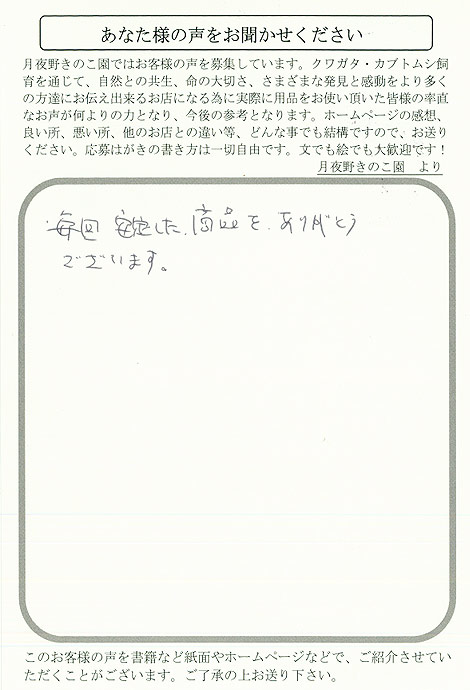 あなた様の声をお聞かせください
月夜野きのこ園ではお客様の声を募集しています。クワガタ・カブトムシ飼
育を通じて、自然との共生、命の大切さ、さまざまな発見と感動をより多く
の方達にお伝え出来るお店になる為に実際に用品をお使い頂いた皆様の率直
なお声が何よりの力となり、今後の参考となります。ホームページの感想、
良い所、悪い所、他のお店との違い等、どんな事でも結構ですので、お送り
ください。応募はがきの書き方は一切自由です。文でも絵でも大歓迎です！
月夜野きのこ園　より
毎回 安定した、商品を、ありがとう
ございます。
このお客様の声を書籍など紙面やホームページなどで、ご紹介させてい
ただくことがございます。ご了承の上お送り下さい。